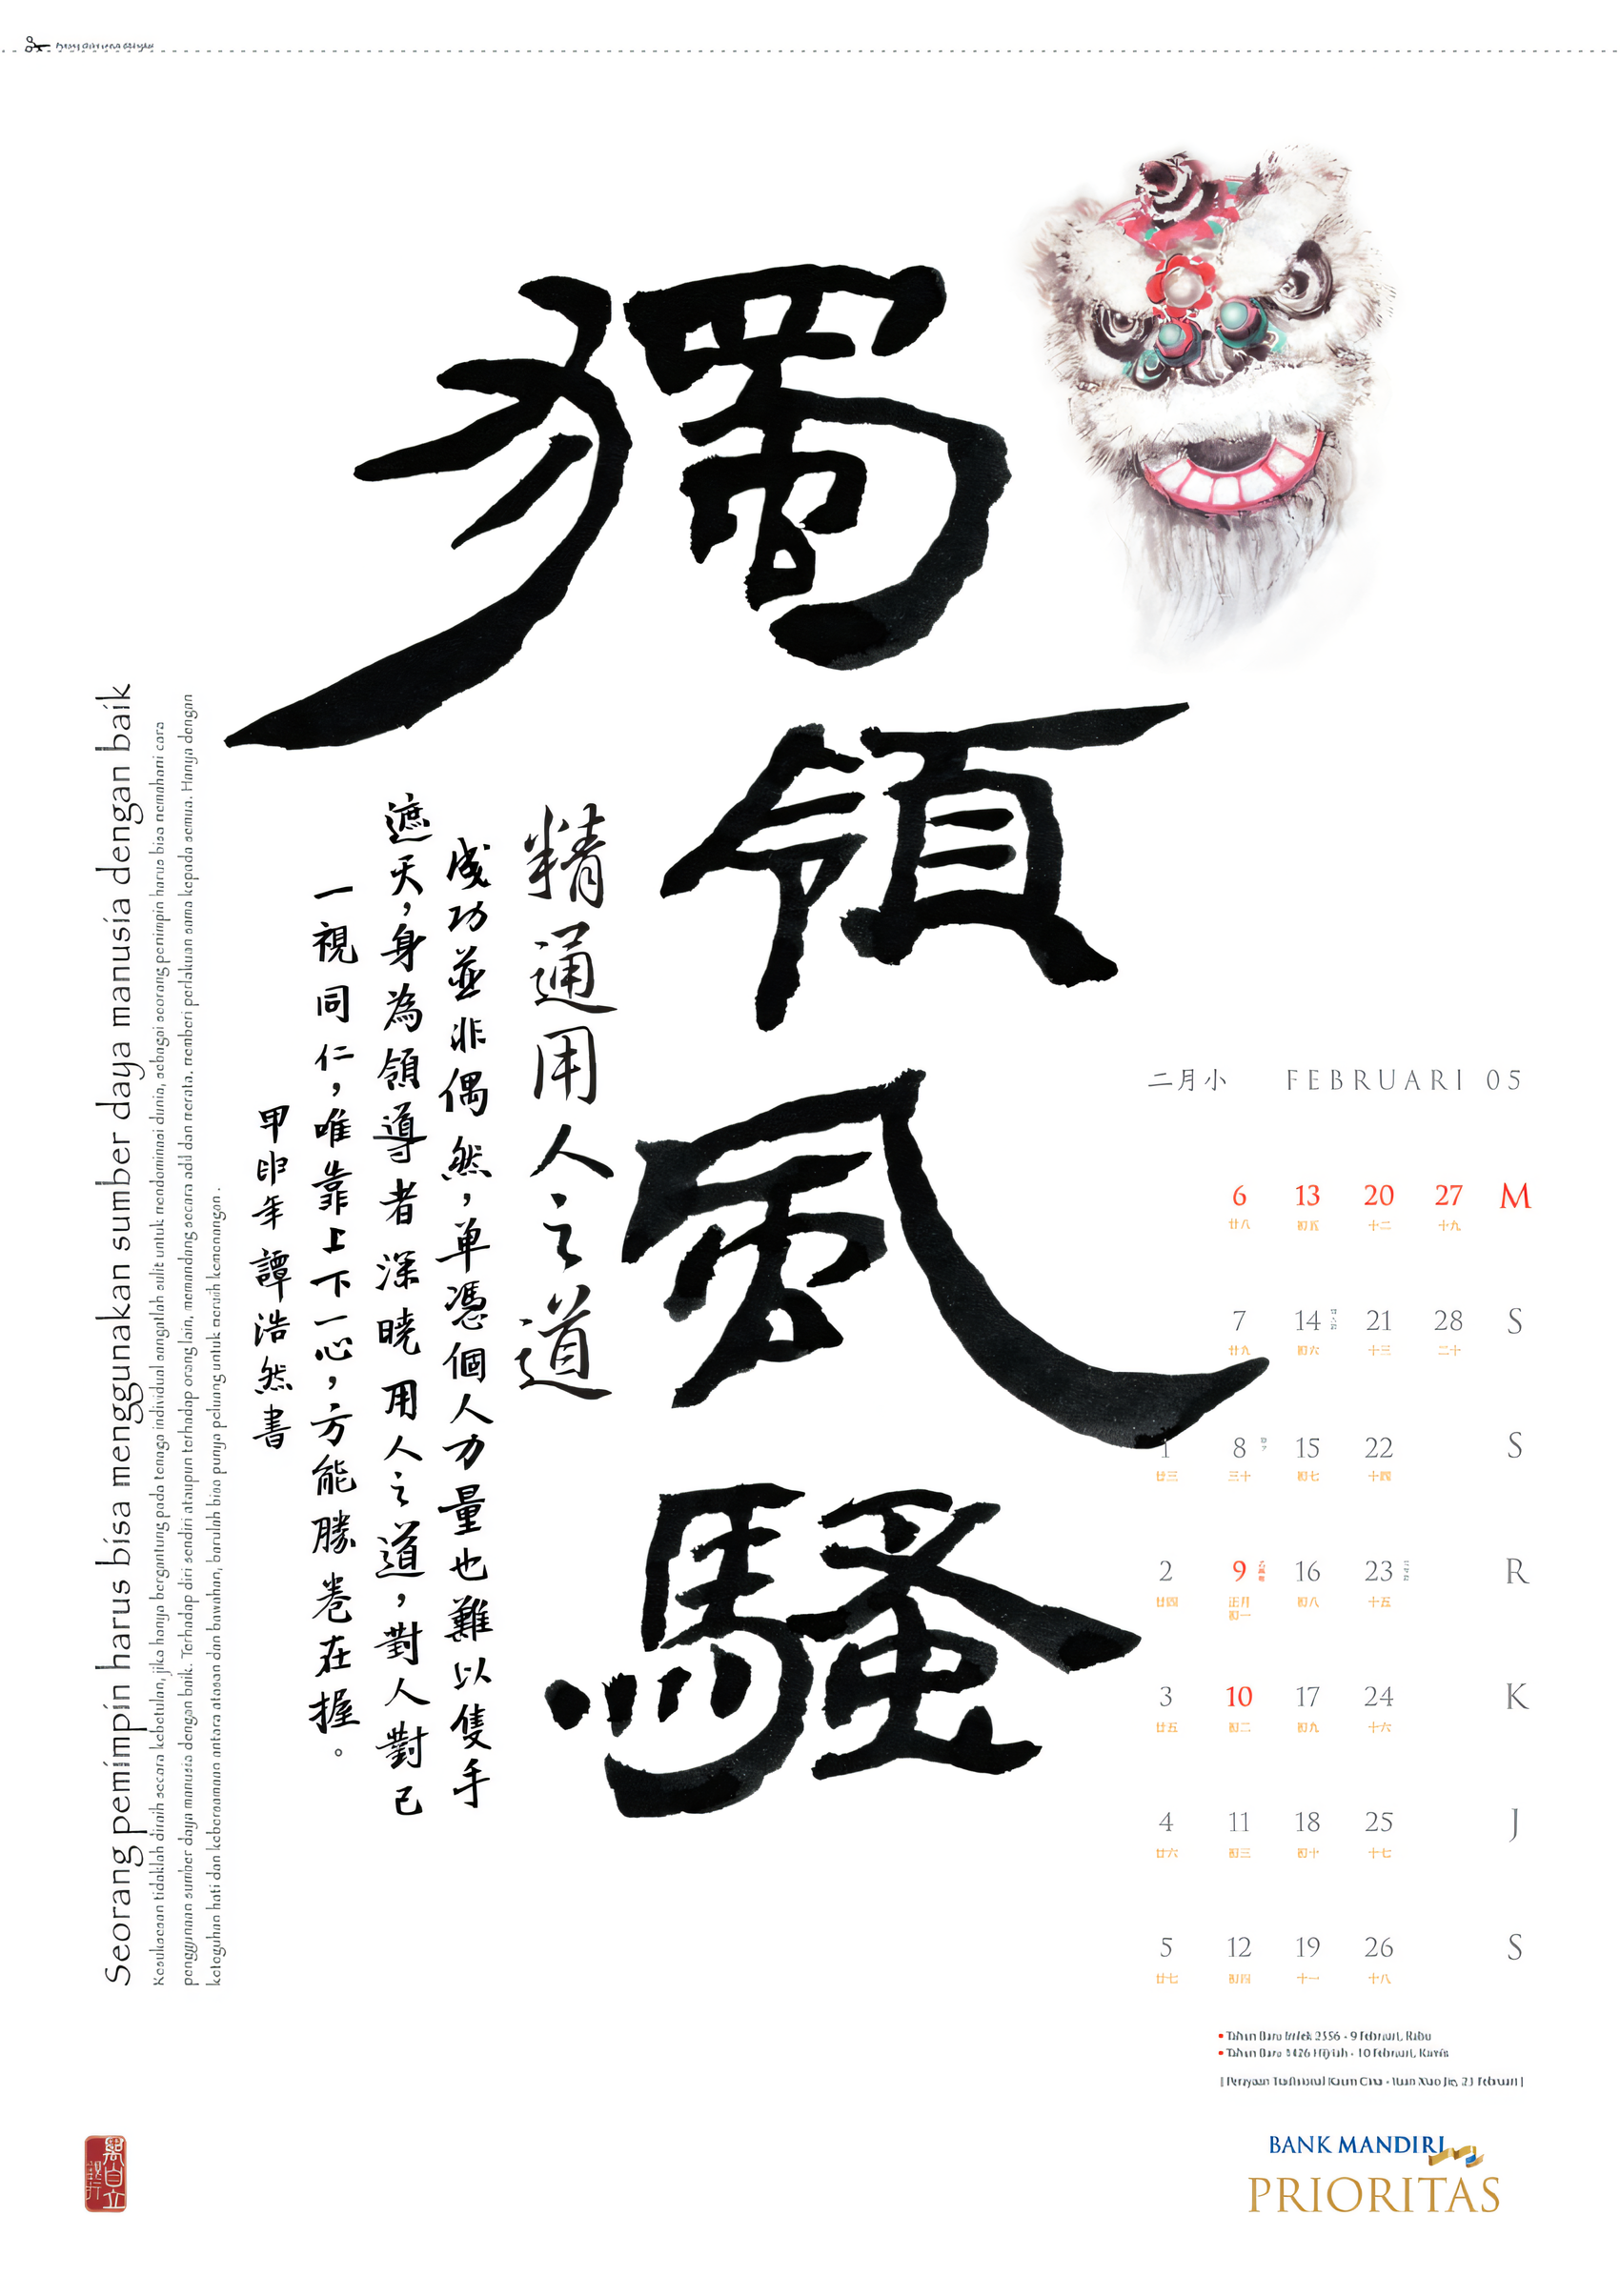 獨領風騷
精通用人之道
成功並非偶然,單憑個人力量也難以隻手
遮天,身為領導者深曉用人之道,對人對己
一視同仁,唯靠上下一心,方能勝卷在握。
甲申年譚浩然書
Seorang pemimpin harus bisa menggunakan sumber daya manusia dengan baik
Kesuksesan tidaklah diraih secara kebetulan, jika hanya bergantung pada tenaga individual sangatlah sulit untuk mendominasi dunia, sebagai seorang pemimpin harus bisa memahami cara
penggunaan sumber daya manusia dengan baik. Terhadap diri sendiri ataupun terhadap orang lain, memandang secara adil dan merata, memberi perlakuan sama kepada semua. Hanya dengan
keteguhan hati dan kebersamaan antara atasan dan bawahan, barulah bisa punya peluang untuk meraih kemenangan.
二月小 FEBRUARI 05
6 13 20 27 M
廿八 初五 十二 十九
7 14 21 28 S
廿九 初六 十三 二十
1 8 15 22 S
廿三 三十 初七 十四
2 9 16 23 R
廿四 正月初一 初八 十五
3 10 17 24 K
廿五 初二 初九 十六
4 11 18 25 J
廿六 初三 初十 十七
5 12 19 26 S
廿七 初四 十一 十八
• Tahun Baru Imlek 2556 - 9 Februari, Rabu
• Tahun Baru 1426 Hijriah - 10 Februari, Kamis
[ Perayaan Tradisional Kaum Cina - Yuan Xiao Jie, 23 Februari ]
BANK MANDIRI
PRIORITAS